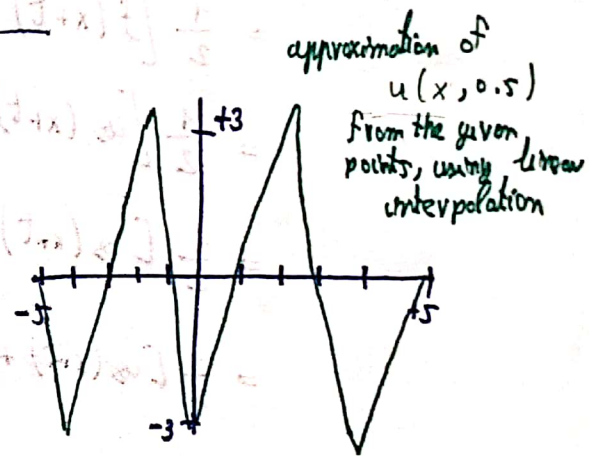 approximation of
u(x, 0.5)
from the given
points, using linear
interpolation
+3
-5
+5
-3